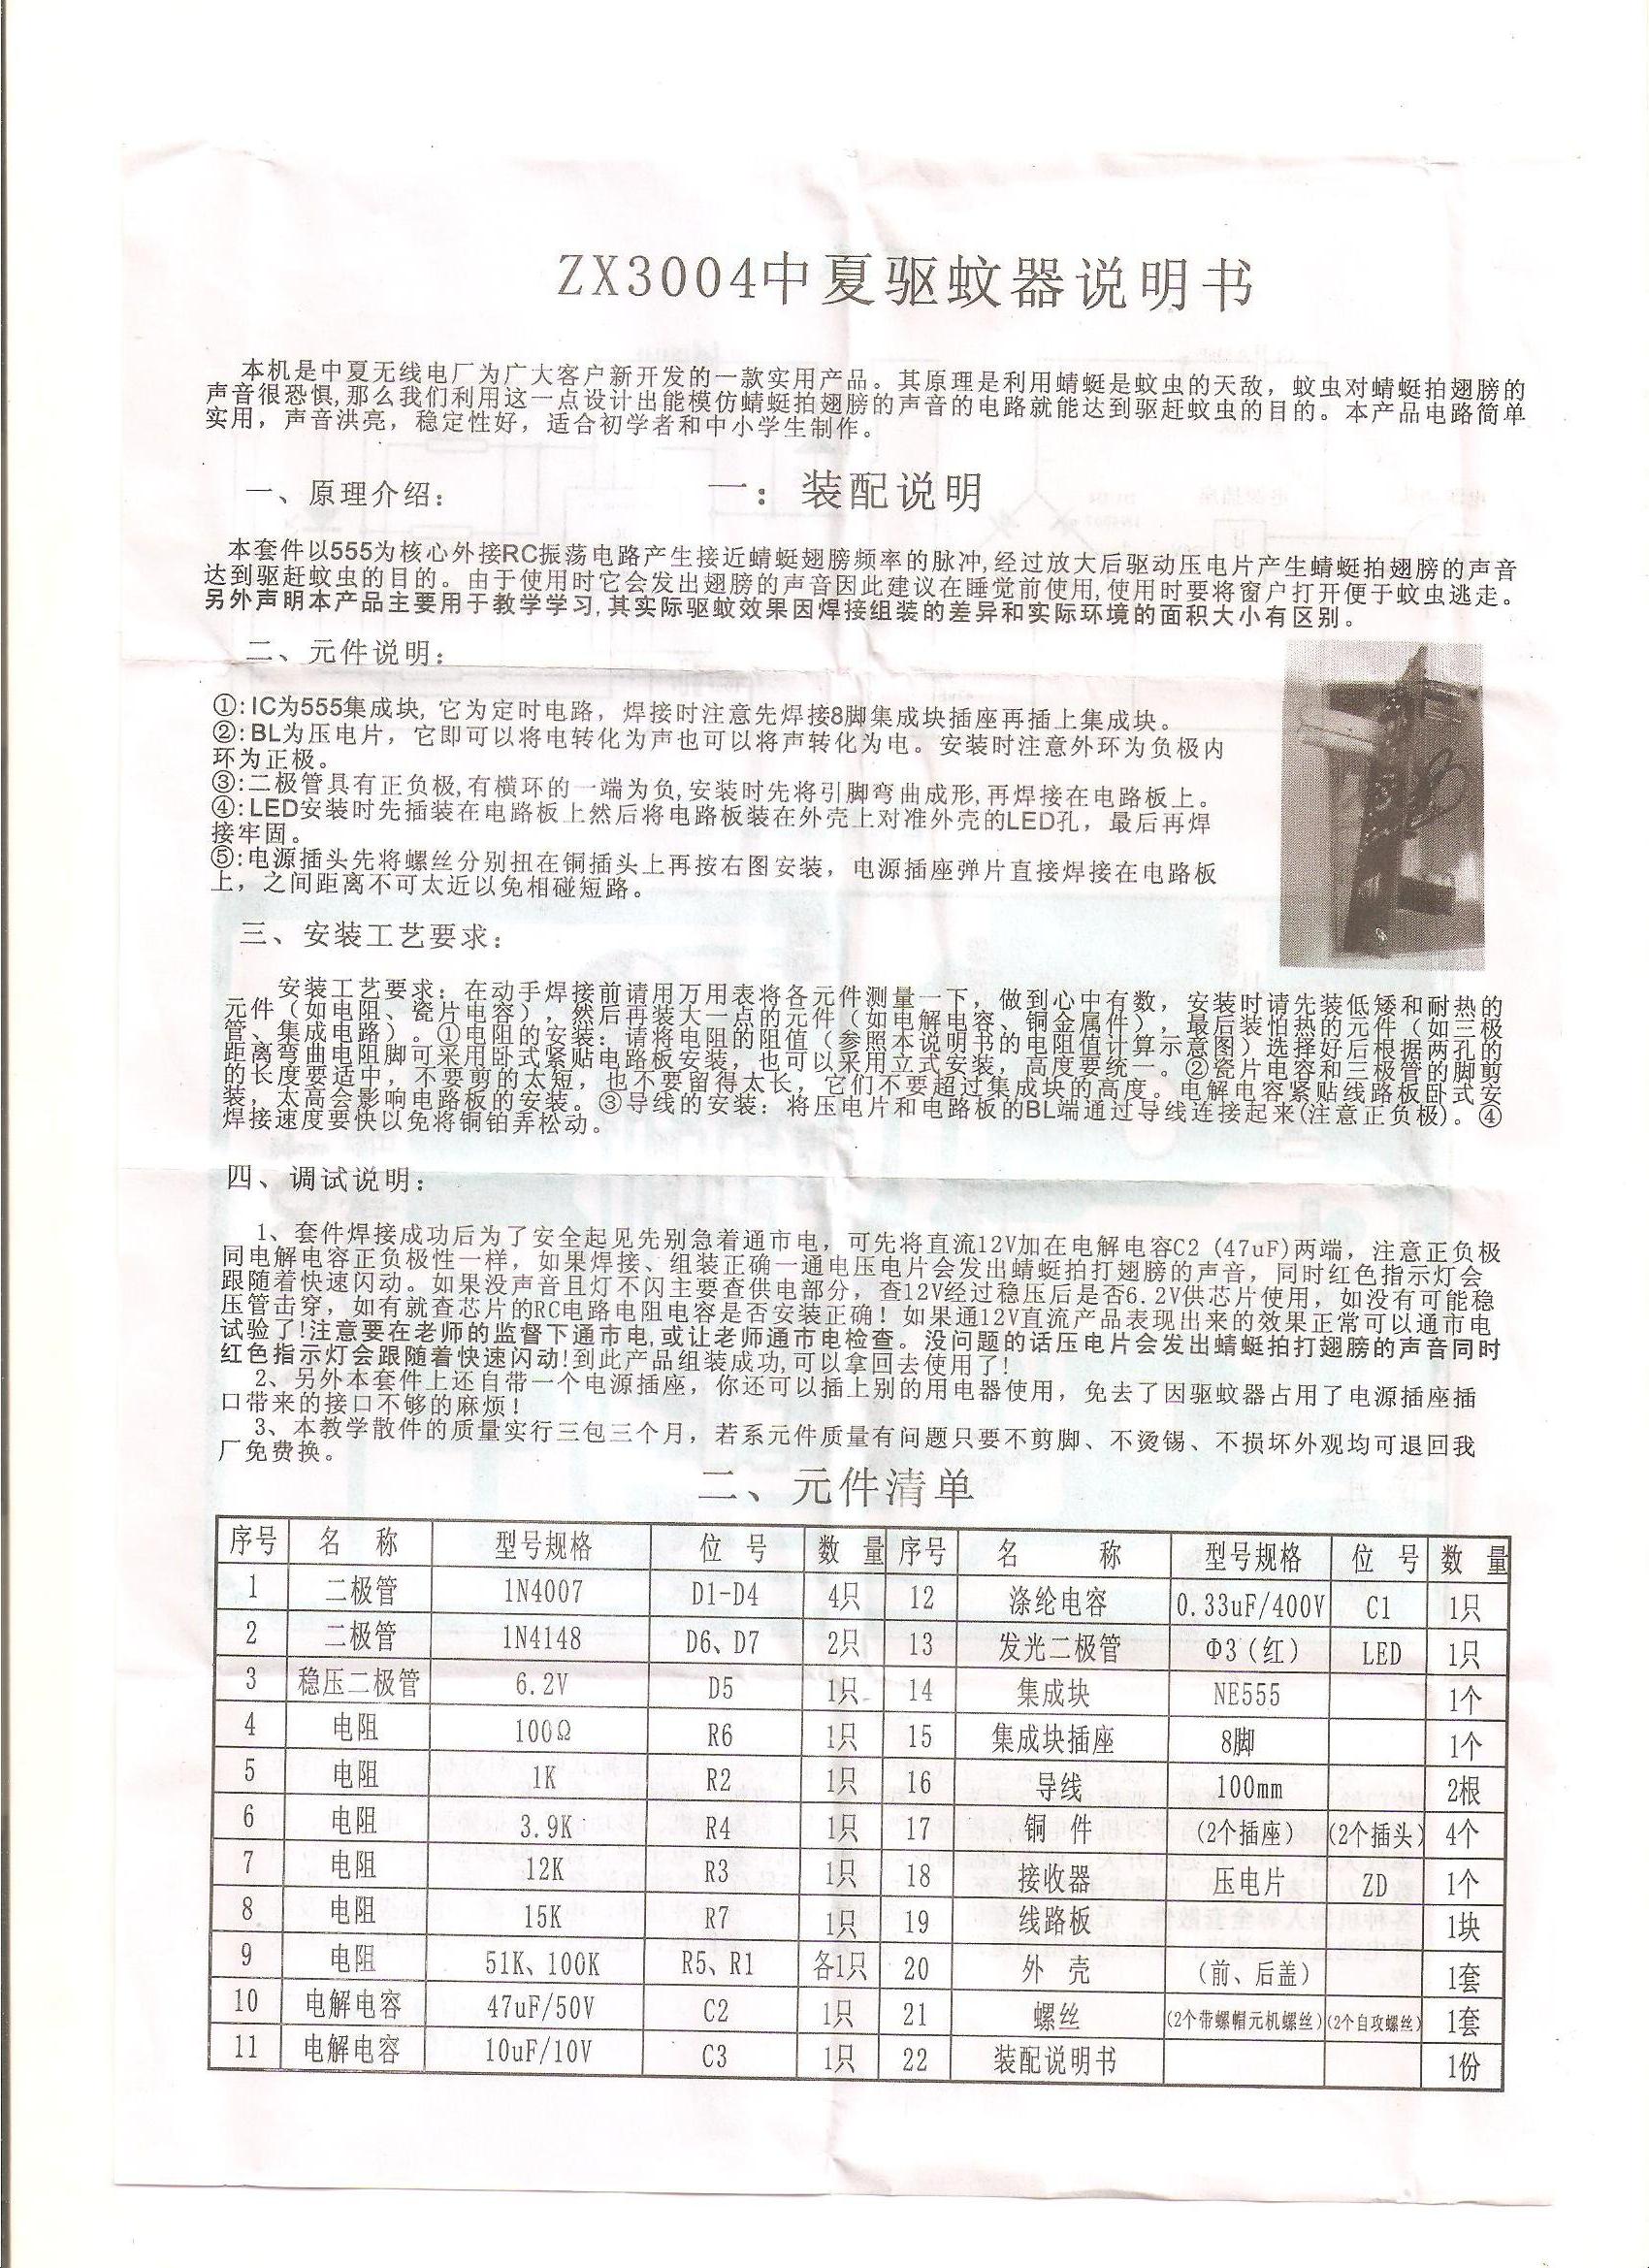 ZX3004中夏驱蚊器说明书
本机是中夏无线电厂为广大客户新开发的一款实用产品。其原理是利用蜻蜓是蚊虫的天敌，蚊虫对蜻蜓拍翅膀的
声音很恐惧,那么我们利用这一点设计出能模仿蜻蜓拍翅膀的声音的电路就能达到驱赶蚊虫的目的。本产品电路简单
实用，声音洪亮，稳定性好，适合初学者和中小学生制作。
一：装配说明
一、原理介绍：
本套件以555为核心外接RC振荡电路产生接近蜻蜓翅膀频率的脉冲,经过放大后驱动压电片产生蜻蜓拍翅膀的声音
达到驱赶蚊虫的目的。由于使用时它会发出翅膀的声音因此建议在睡觉前使用,使用时要将窗户打开便于蚊虫逃走。
另外声明本产品主要用于教学学习,其实际驱蚊效果因焊接组装的差异和实际环境的面积大小有区别。
二、元件说明：
①:IC为555集成块,它为定时电路，焊接时注意先焊接8脚集成块插座再插上集成块。
②:BL为压电片，它即可以将电转化为声也可以将声转化为电。安装时注意外环为负极内
环为正极。
③:二极管具有正负极,有横环的一端为负,安装时先将引脚弯曲成形,再焊接在电路板上。
④:LED安装时先插装在电路板上然后将电路板装在外壳上对准外壳的LED孔，最后再焊
接牢固。
⑤:电源插头先将螺丝分别扭在铜插头上再按右图安装，电源插座弹片直接焊接在电路板
上，之间距离不可太近以免相碰短路。
三、安装工艺要求：
安装工艺要求：在动手焊接前请用万用表将各元件测量一下，做到心中有数，安装时请先装低矮和耐热的
元件（如电阻、瓷片电容），然后再装大一点的元件（如电解电容、铜金属件），最后装怕热的元件（如三极
管、集成电路）。①电阻的安装：请将电阻的阻值（参照本说明书的电阻值计算示意图）选择好后根据两孔的
距离弯曲电阻脚可采用卧式紧贴电路板安装，也可以采用立式安装，高度要统一。②瓷片电容和三极管的脚剪
的长度要适中，不要剪的太短，也不要留得太长，它们不要超过集成块的高度。电解电容紧贴线路板卧式安
装，太高会影响电路板的安装。③导线的安装：将压电片和电路板的BL端通过导线连接起来(注意正负极)。④
焊接速度要快以免将铜铂弄松动。
四、调试说明：
1、套件焊接成功后为了安全起见先别急着通市电，可先将直流12V加在电解电容C2 (47uF)两端，注意正负极
同电解电容正负极性一样，如果焊接、组装正确一通电压电片会发出蜻蜓拍打翅膀的声音，同时红色指示灯会
跟随着快速闪动。如果没声音且灯不闪主要查供电部分，查12V经过稳压后是否6.2V供芯片使用，如没有可能稳
压管击穿，如有就查芯片的RC电路电阻电容是否安装正确！如果通12V直流产品表现出来的效果正常可以通市电
试验了!注意要在老师的监督下通市电,或让老师通市电检查。没问题的话压电片会发出蜻蜓拍打翅膀的声音同时
红色指示灯会跟随着快速闪动!到此产品组装成功,可以拿回去使用了!
2、另外本套件上还自带一个电源插座，你还可以插上别的用电器使用，免去了因驱蚊器占用了电源插座插
口带来的接口不够的麻烦！
3、本教学散件的质量实行三包三个月，若系元件质量有问题只要不剪脚、不烫锡、不损坏外观均可退回我
厂免费换。
二、元件清单
序号 名 称 型号规格 位 号 数 量 序号 名 称 型号规格 位 号 数 量
1 二极管 1N4007 D1-D4 4只 12 涤纶电容 0.33uF/400V C1 1只
2 二极管 1N4148 D6、D7 2只 13 发光二极管 Φ3（红） LED 1只
3 稳压二极管 6.2V D5 1只 14 集成块 NE555 1个
4 电阻 100Ω R6 1只 15 集成块插座 8脚 1个
5 电阻 1K R2 1只 16 导线 100mm 2根
6 电阻 3.9K R4 1只 17 铜 件 (2个插座) (2个插头) 4个
7 电阻 12K R3 1只 18 接收器 压电片 ZD 1个
8 电阻 15K R7 1只 19 线路板 1块
9 电阻 51K、100K R5、R1 各1只 20 外 壳 （前、后盖） 1套
10 电解电容 47uF/50V C2 1只 21 螺丝 (2个带螺帽元机螺丝) (2个自攻螺丝) 1套
11 电解电容 10uF/10V C3 1只 22 装配说明书 1份